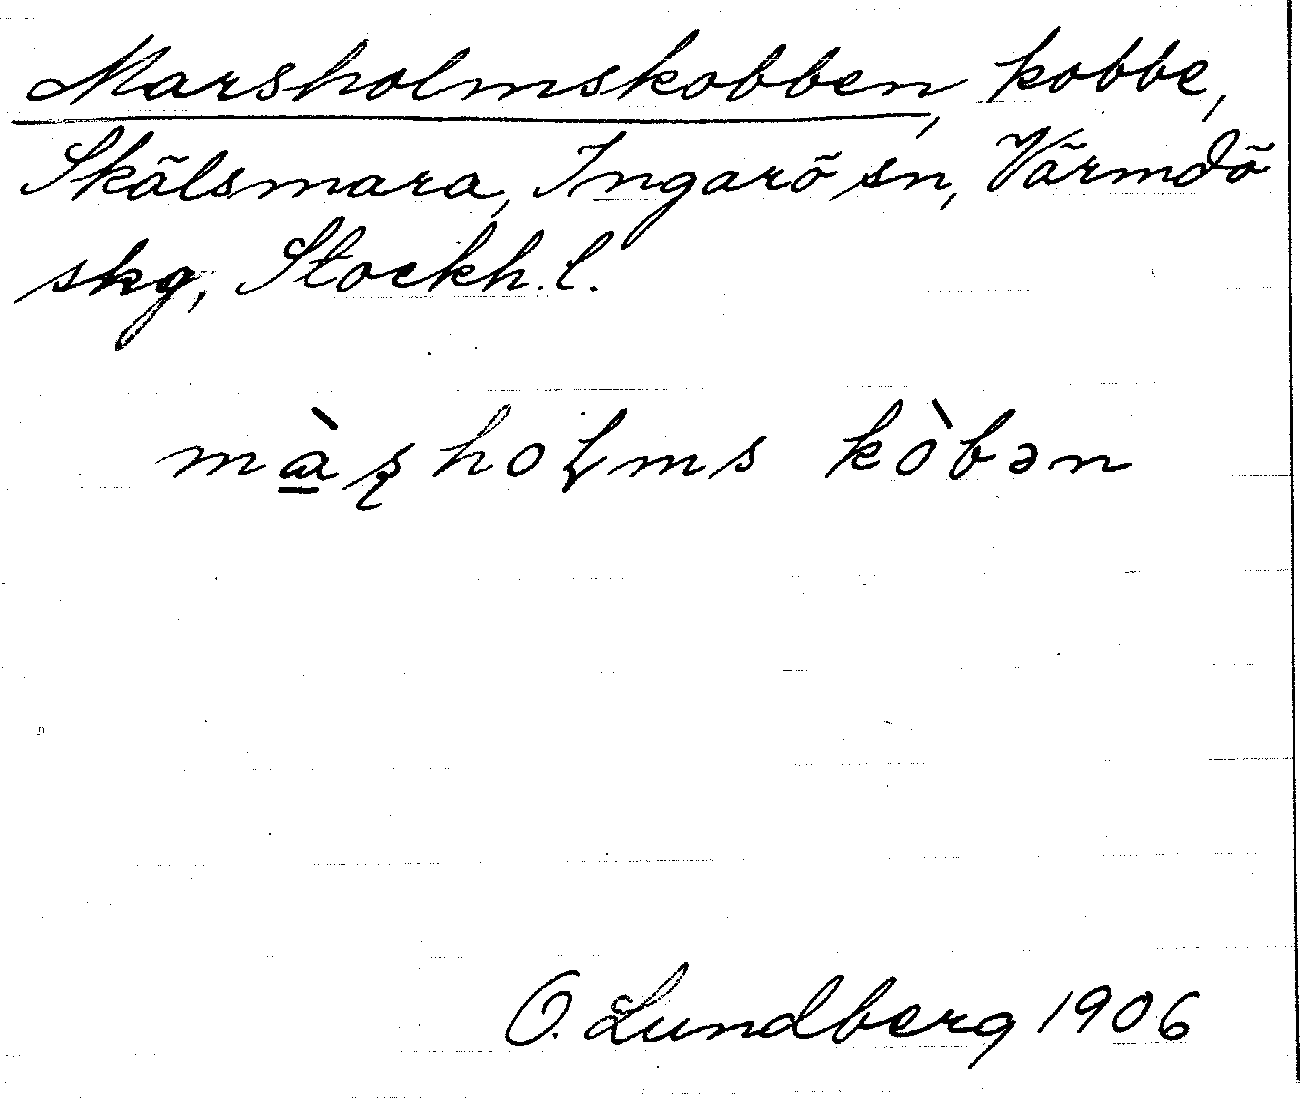 Marsholmskobben, kobbe,
Skälsmara, Ingarö sn, Värmdö
skg, Stockh. l.
màʂhoɭms kòbən
O. Lundberg 1906